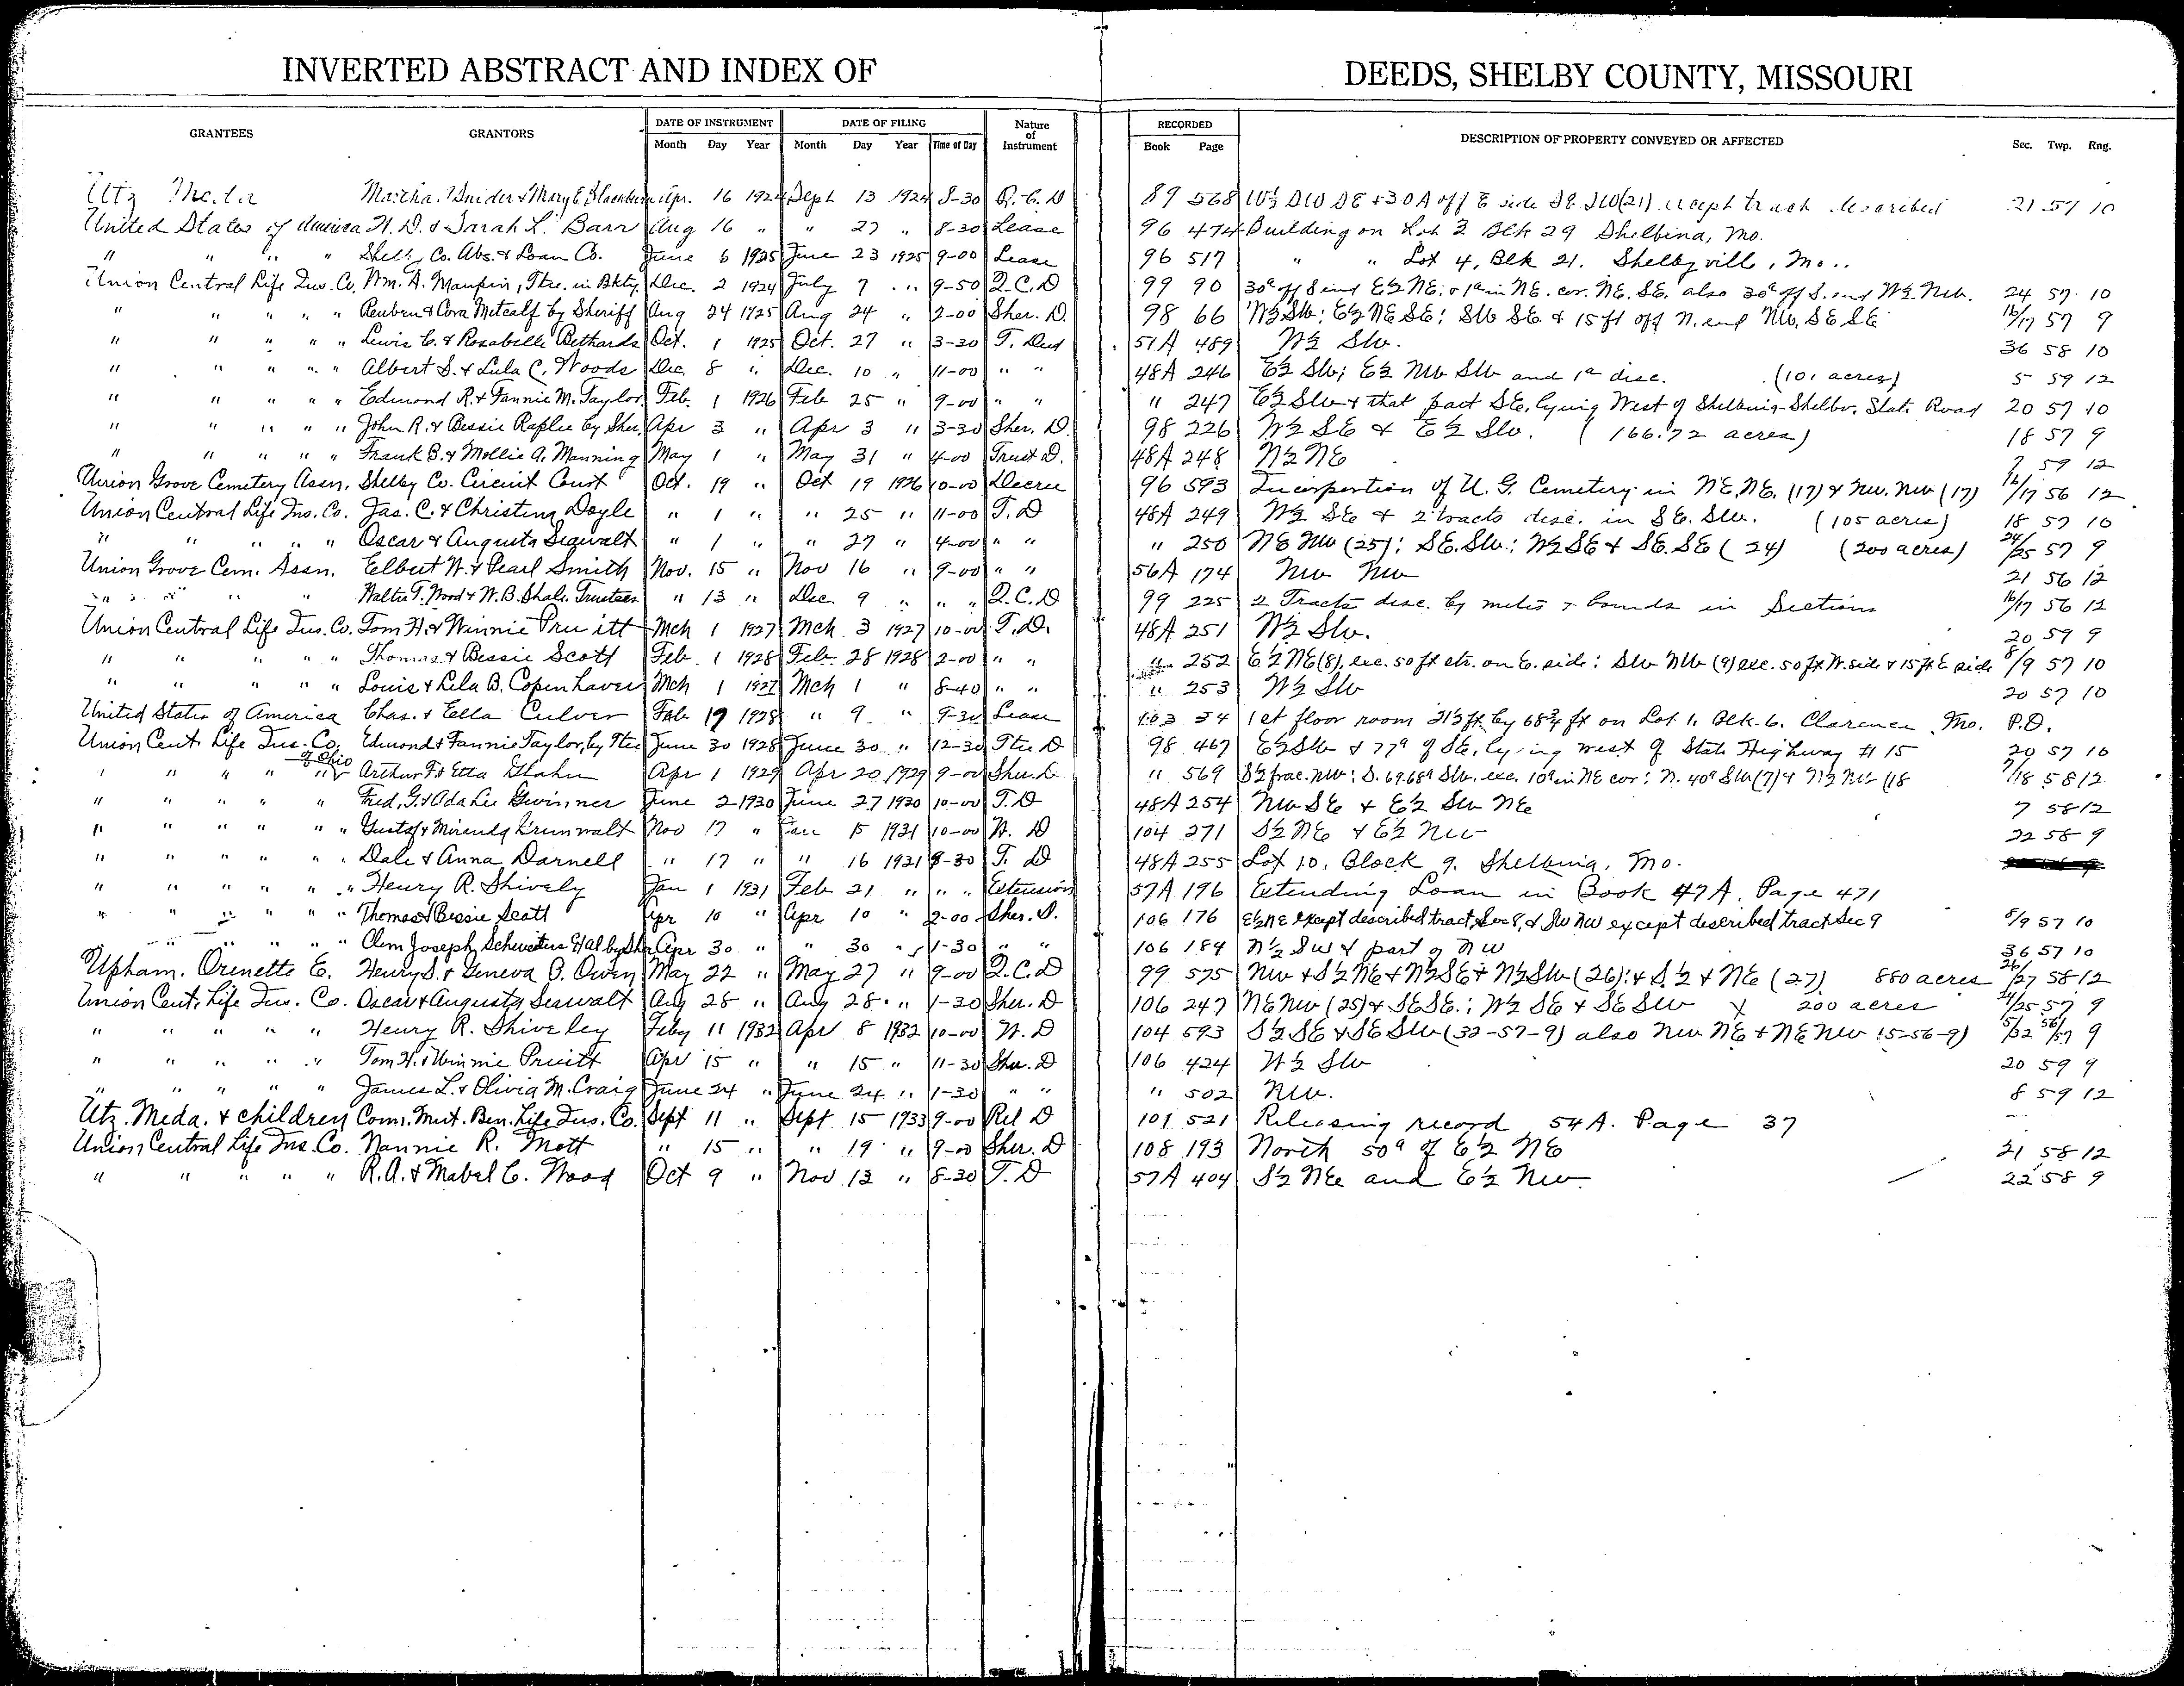 INVERTED ABSTRACT AND INDEX OF DEEDS, SHELBY COUNTY, MISSOURI
GRANTEES GRANTORS DATE OF INSTRUMENT DATE OF FILING Nature of Instrument RECORDED DESCRIPTION OF PROPERTY CONVEYED OR AFFECTED Sec. Twp. Rng.
Month Day Year Month Day Year Time of Day Book Page
Utz Meda Martha Snider & Mary E Apr. 16 1924 Sept 13 1924 8-30 Q.C.D 89 568 W½ SW SE & 30 A off E side SE SW (21) except track described 21 57 10
United States of America H. D. & Sarah L. Barr Aug 16 " " 27 " 8-30 Lease 96 474 Building on Lot 2 Blk 29 Shelbina, Mo.
" " " " Shelby Co. Abs. & Loan Co. June 6 1925 June 23 1925 9-00 Lease 96 517 " " Lot 4, Blk 21. Shelbyville, Mo..
Union Central Life Ins. Co. Wm. A. Maupin, Ttee. in Bkty. Dec. 2 1924 July 7 " 9-50 Q.C.D 99 90 30ª off S end E½ NE; & 1ª in NE. cor. NE. SE. also 30ª off S. end W½ NW. 24 57 10
" " " " " Reuben & Cora Metcalf by Sheriff Aug 24 1925 Aug 24 " 2-00 Sher. D. 98 66 W½ SW; E½ NE SE; SW SE. & 15 ft off N. end NW. SE SE 16/17 57 9
" " " " " Lewis C. & Rosabelle Bethards Oct. 1 1925 Oct. 27 " 3-30 T. Deed 51A 489 W½ SW. 36 58 10
" " " " " Albert S. & Lula C. Woods Dec. 8 " Dec. 10 " 11-00 " " 48A 246 E½ SW; E½ NW SW and 1ª disc. (101 acres) 5 59 12
" " " " " Edmond R. & Fannie M. Taylor Feb. 1 1926 Feb 25 " 9-00 " " " 247 E½ SW & that part SE, lying West of Shelbina-Shelby. State Road 20 57 10
" " " " " John R. & Bessie Raplee by Sher. Apr 3 " Apr 3 " 3-30 Sher. D. 98 226 W½ SE & E½ SW. (166.72 acres) 18 57 9
" " " " " Frank B. & Mollie A. Manning May 1 " May 31 " 4-00 Trust D. 48A 248 N½ NE 7 59 12
Union Grove Cemetery Assn. Shelby Co. Circuit Court Oct. 19 " Oct 19 1926 10-00 Decree 96 593 Incorportion of U. G. Cemetery in NE, NE. (17) & NW. NW (17) 16/17 56 12
Union Central Life Ins. Co. Jas. C. & Christina Doyle " 1 " " 25 " 11-00 T. D 48A 249 W½ SE & 2 tracts disc. in SE. SW. (105 acres) 18 57 10
" " " " " Oscar & Augusta Seawalt " 1 " " 27 " 4-00 " " " 250 NE NW (25); SE. SW.; W½ SE & SE. SE (24) (200 acres) 24/25 57 9
Union Grove Cem. Assn. Elbert W. & Pearl Smith Nov. 15 " Nov 16 " 9-00 " " 56A 174 NW NW 21 56 12
" " " " Walter T. Wood & W. B. Shale Trustees " 13 " Dec. 9 " " " Q.C.D 99 225 2 Tracts desc. by metes & bounds in Sections 16/17 56 12
Union Central Life Ins. Co. Tom H. & Winnie Pruitt Mch 1 1927 Mch 3 1927 10-00 T.D. 48A 251 W½ SW. 20 59 9
" " " " " Thomas & Bessie Scott Feb. 1 1928 Feb. 28 1928 2-00 " " " 252 E½ NE (8), exc. 50 ft str. on E. side; SW NW (9) exc. 50 ft W. side & 15 ft E side 8/9 57 10
" " " " " Louis & Lela B. Copenhaver Mch 1 1927 Mch 1 " 8-40 " " " 253 W½ SW 20 57 10
United States of America Chas. & Ella Culver Feb 17 1928 " 9 " 9-30 Lease 103 34 1st floor room 21½ ft by 68¾ ft on Lot 1, Blk. 6. Clarence Mo. P.O.
Union Cent. Life Ins. Co. Edmond & Fannie Taylor, by Ttee June 30 1928 June 30 " 12-30 Ttee D 98 467 E½ SW & 77ª of SE, lying west of State Highway #15 20 57 10
of Ohio
" " " " " Arthur F & Etta Apr 1 1929 Apr 20 1929 9-00 Sher. D " 569 S½ frac. NW; S. 69.68ª SW. exc. 10ª in NE cor; N. 40ª SW (7) & N½ NW (18 7/18 58 12
" " " " " Fred. G. & Ada Lee Gwinner June 2 1930 June 27 1930 10-00 T. D 48A 254 NW SE & E½ SW NE 7 58 12
" " " " " Gustaf & Mirenda Krunwalt Nov 17 " Jan 15 1931 10-00 W. D 104 271 S½ NE & E½ NW 22 58 9
" " " " " Dale & Anna Darnell " 17 " " 16 1931 8-30 T. D 48A 255 Lot 10, Block 9. Shelbina, Mo.
" " " " " Henry R. Shively Jan 1 1931 Feb 21 " " " Extension 57A 196 Extending Loan in Book 47A. Page 471
" " " " " Thomas & Bessie Scott Apr 10 " Apr 10 " 2-00 Sher. D. 106 176 E½ NE except described tract, Sec 8, & SW NW except described tract Sec 9 8/9 57 10
" " " " Clem Joseph Schwieters et al by Sher Apr 30 " " 30 " 1-30 " " 106 184 N½ SW & part of NW 36 57 10
Upham. Orenette E. Henry S. & Geneva O. Owen May 22 " May 27 " 9-00 Q.C.D 99 575 NW & S½ NE & N½ SE & N½ SW (26); & S. ½ & NE (27) 880 acres 26/27 58 12
Union Cent. Life Ins. Co. Oscar & Augusta Seawalt Aug 28 " Aug 28 " 1-30 Sher. D 106 247 NE NW (25) & SE SE.; W½ SE & SE SW 200 acres 24/25 57 9
" " " " " Henry R. Shiveley Feby 11 1932 Apr 8 1932 10-00 W. D 104 593 S½ SE & SE SW (32-57-9) also NW NE & NE NW (5-56-9) 5/32 56/57 9
" " " " " Tom H. & Winnie Pruitt Apr 15 " " 15 " 11-30 Sher. D 106 424 W½ SW 20 59 9
" " " " " James L. & Olivia M. Craig June 24 " June 24 " 1-30 " " " 502 NW. 8 59 12
Utz. Meda. & children Com. Mut. Ben. Life Ins. Co. Sept 11 " Sept 15 1933 9-00 Rel D 101 521 Releasing record 54A. Page 37
Union Central Life Ins. Co. Nannie R. Mott " 15 " " 19 " 9-00 Sher. D 108 193 North 50ª of E½ NE 21 58 12
" " " " " R. A. & Mabel C. Wood Oct 9 " Nov 13 " 8-30 T. D 57A 404 S½ NE and E½ NW. 22 58 9